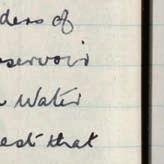 ders of
servoir
Water
est that